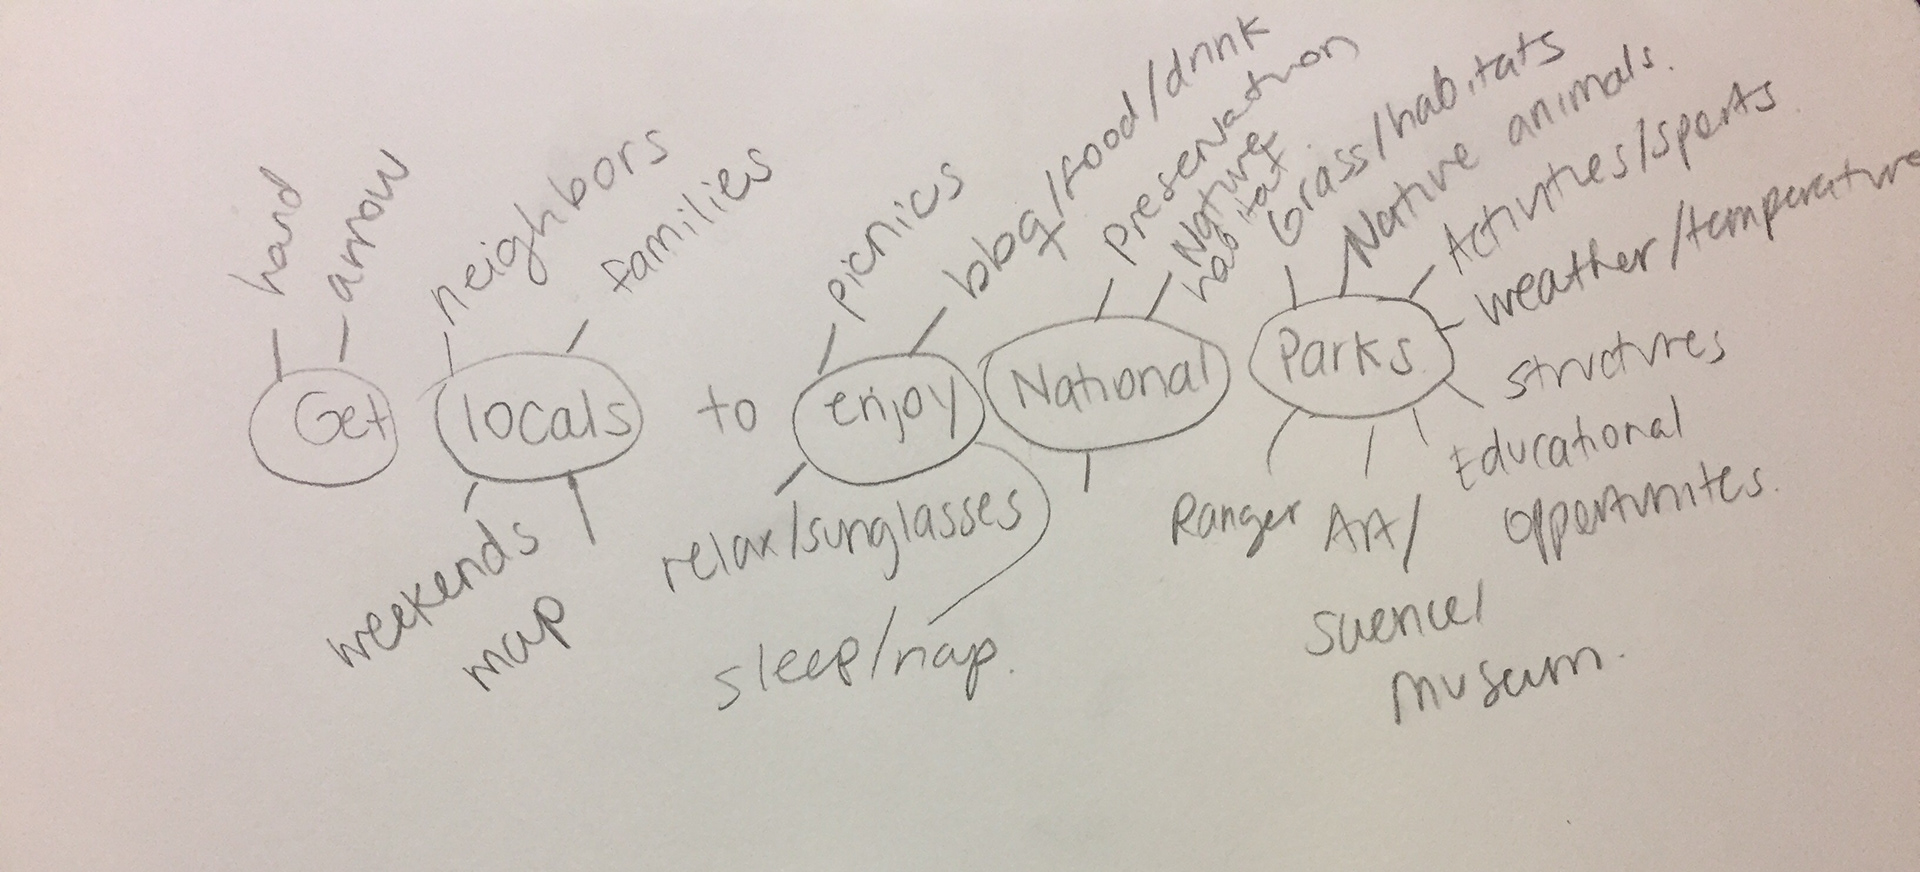 hand
arrow
neighbors
families
picnics
bbq/food/drink
Preservation
Nature
habitat.
Grass/habitats
Native animals.
Activities/sports.
weather/temperature
Get locals to enjoy National Parks
structures
Educational
opportunites.
Ranger
Art/
Science/
museum.
relax/sunglasses
sleep/nap.
weekends
map